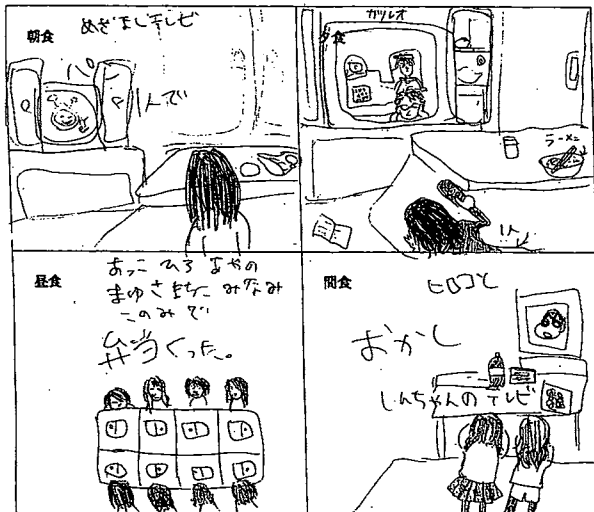 朝食
めざましテレビ
パン
1人で
夕食
ラーメン
1人
昼食
あっこ ひろ あやの
まゆ さき みなみ
このみで
弁当くった。
間食
ヒロコと
おかし
しんちゃんのテレビ